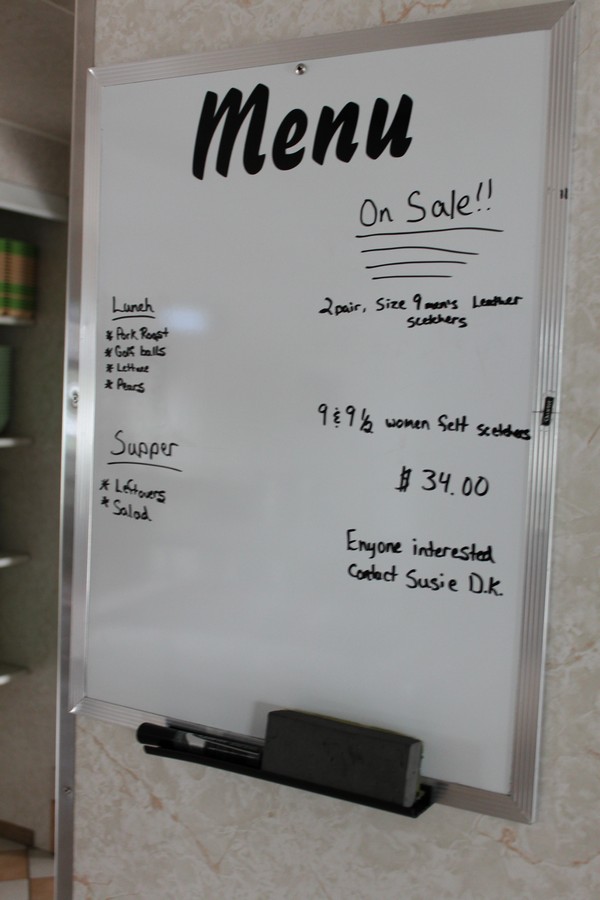 Menu
On Sale!!
Lunch
* Pork Roast
* Golf balls
* Lettuce
* Pears
Supper
* Leftovers
* Salad
2 pair, Size 9 men's Leather
scetchers
9 & 9 1/2 women felt scetchers
$ 34.00
Enyone interested
Contact Susie D.K.